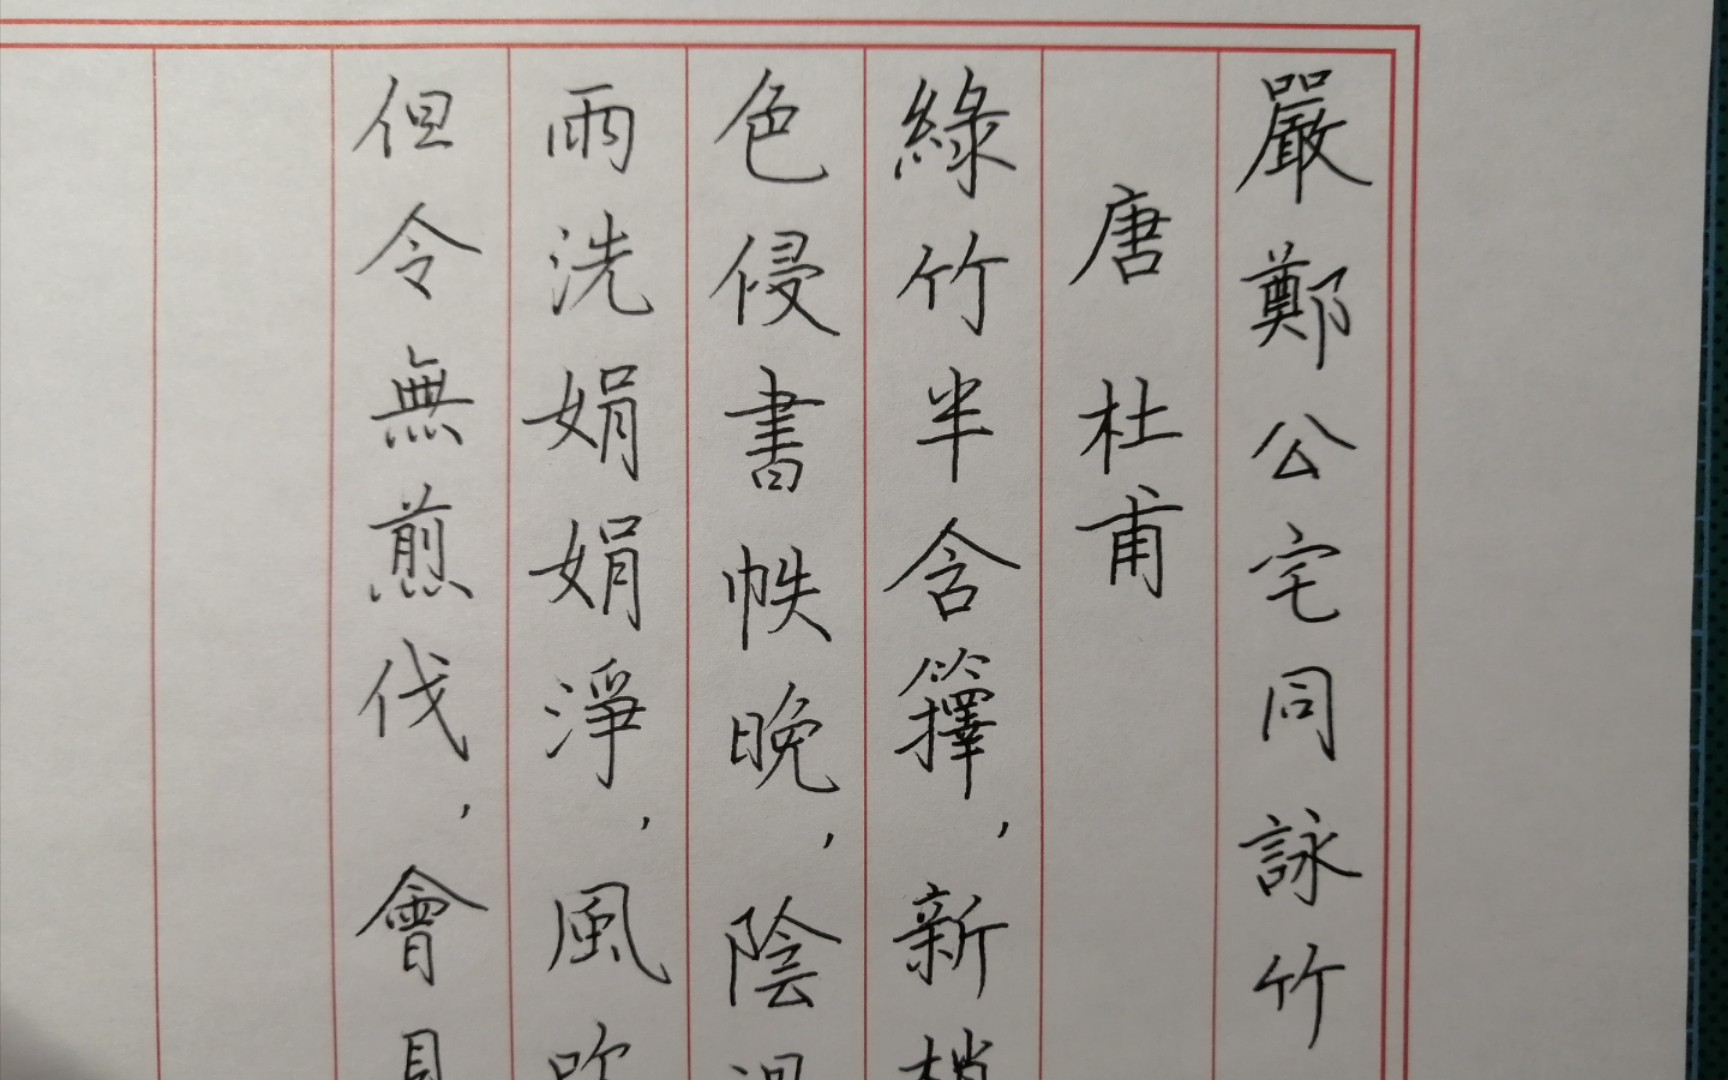 嚴鄭公宅同詠竹
唐 杜甫
綠竹半含籜，新梢
色侵書帙晚，陰過
雨洗娟娟淨，風吹
但令無煎伐，會見